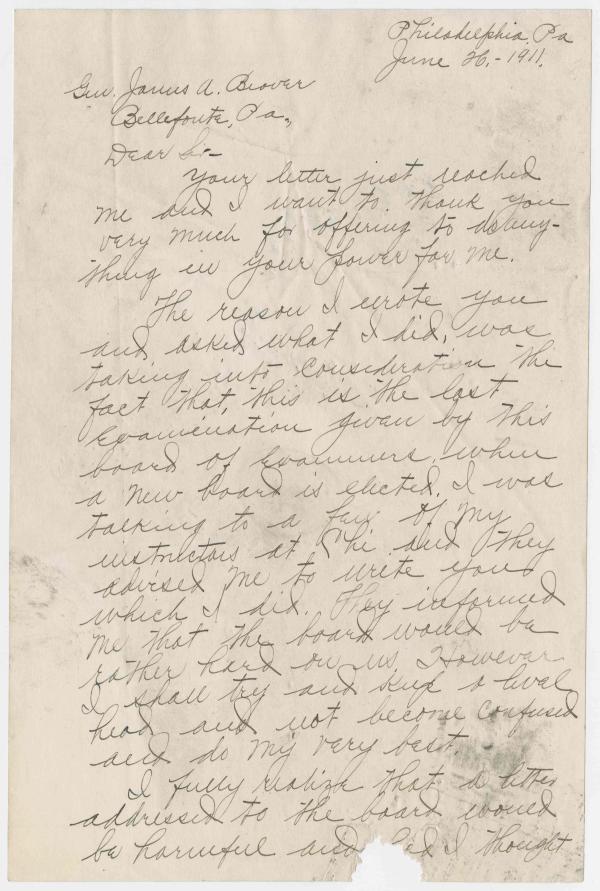 Philadelphia, Pa
June 26,-1911.
Gen. James A. Beaver
Bellefonte, Pa.,
Dear Sir-
Your letter just reached
me and I want to thank you
very much for offering to do any-
thing in your power for me.
The reason I wrote you
and asked what I did, was
taking into consideration the
fact that, this is the last
examination given by this
board of examiners, when
a new board is elected. I was
talking to a few of my
instructors at the and they
advised me to write you
which I did. They informed
me that the board would be
rather hard on us. However
I shall try and keep a level
head and not become confused
and do my very best.
I fully realize that a letter
addressed to the board would
be harmful and I thought